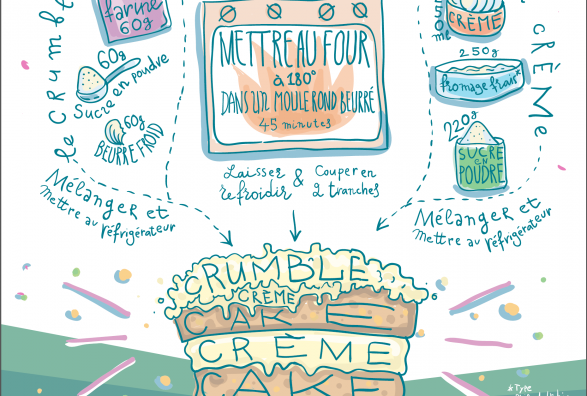 farine
60g
60g
Sucre en poudre
60g
BEURRE FROID
le CRUMBL
Mélanger et
mettre au réfrigérateur
METTRE AU FOUR
à 180°
DANS UN MOULE ROND BEURRÉ
45 minutes
Laisser
refroidir
&
Couper en
2 tranches
CRÈME
250g
fromage frais*
220g
SUCRE
EN
POUDRE
CRÈME
Mélanger et
mettre au réfrigérateur
CRUMBLE
CRÈME
CAKE
CRÈME
CAKE
*Type